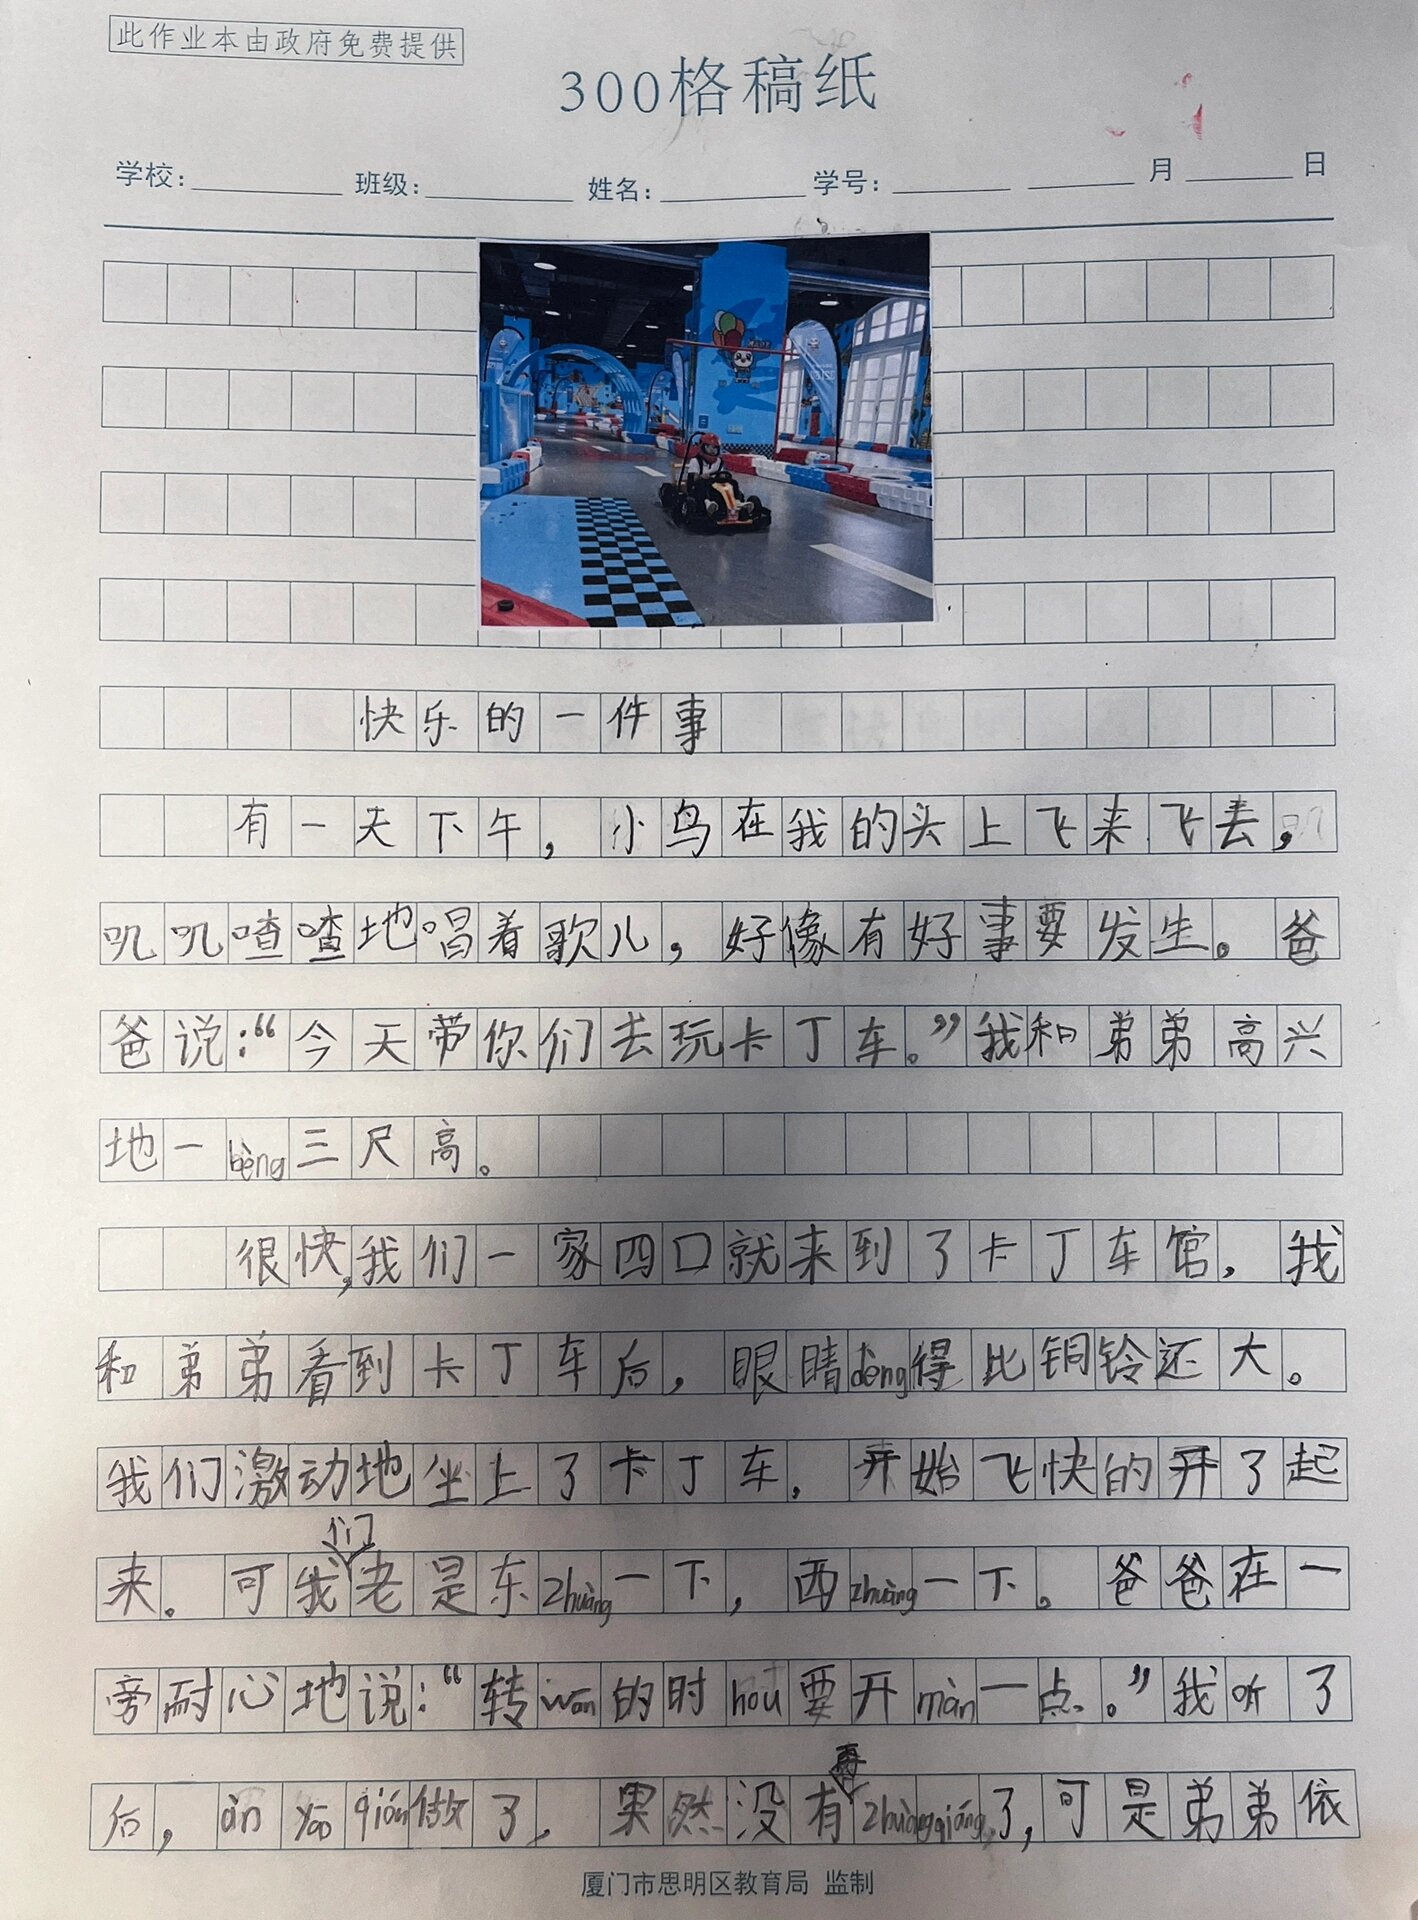 此作业本由政府免费提供
300格稿纸
学校: 班级: 姓名: 学号: 月 日
快乐的一件事
有一天下午，小鸟在我的头上飞来飞去，
叽叽喳喳地唱着歌儿，好像有好事要发生。爸
爸说：“今天带你们去玩卡丁车。”我和弟弟高兴
地一bèng三尺高。
很快，我们一家四口就来到了卡丁车馆，我
和弟弟看到卡丁车后，眼睛dèng得比铜铃还大。
我们激动地坐上了卡丁车，开始飞快的开了起
来。可我们老是东zhuàng一下，西zhuàng一下。爸爸在一
旁耐心地说：“转wān的时hou要开màn一点。”我听了
后，àn yāo qiú做了，果然没有再zhuàngqiáng了，可是弟弟依
厦门市思明区教育局 监制